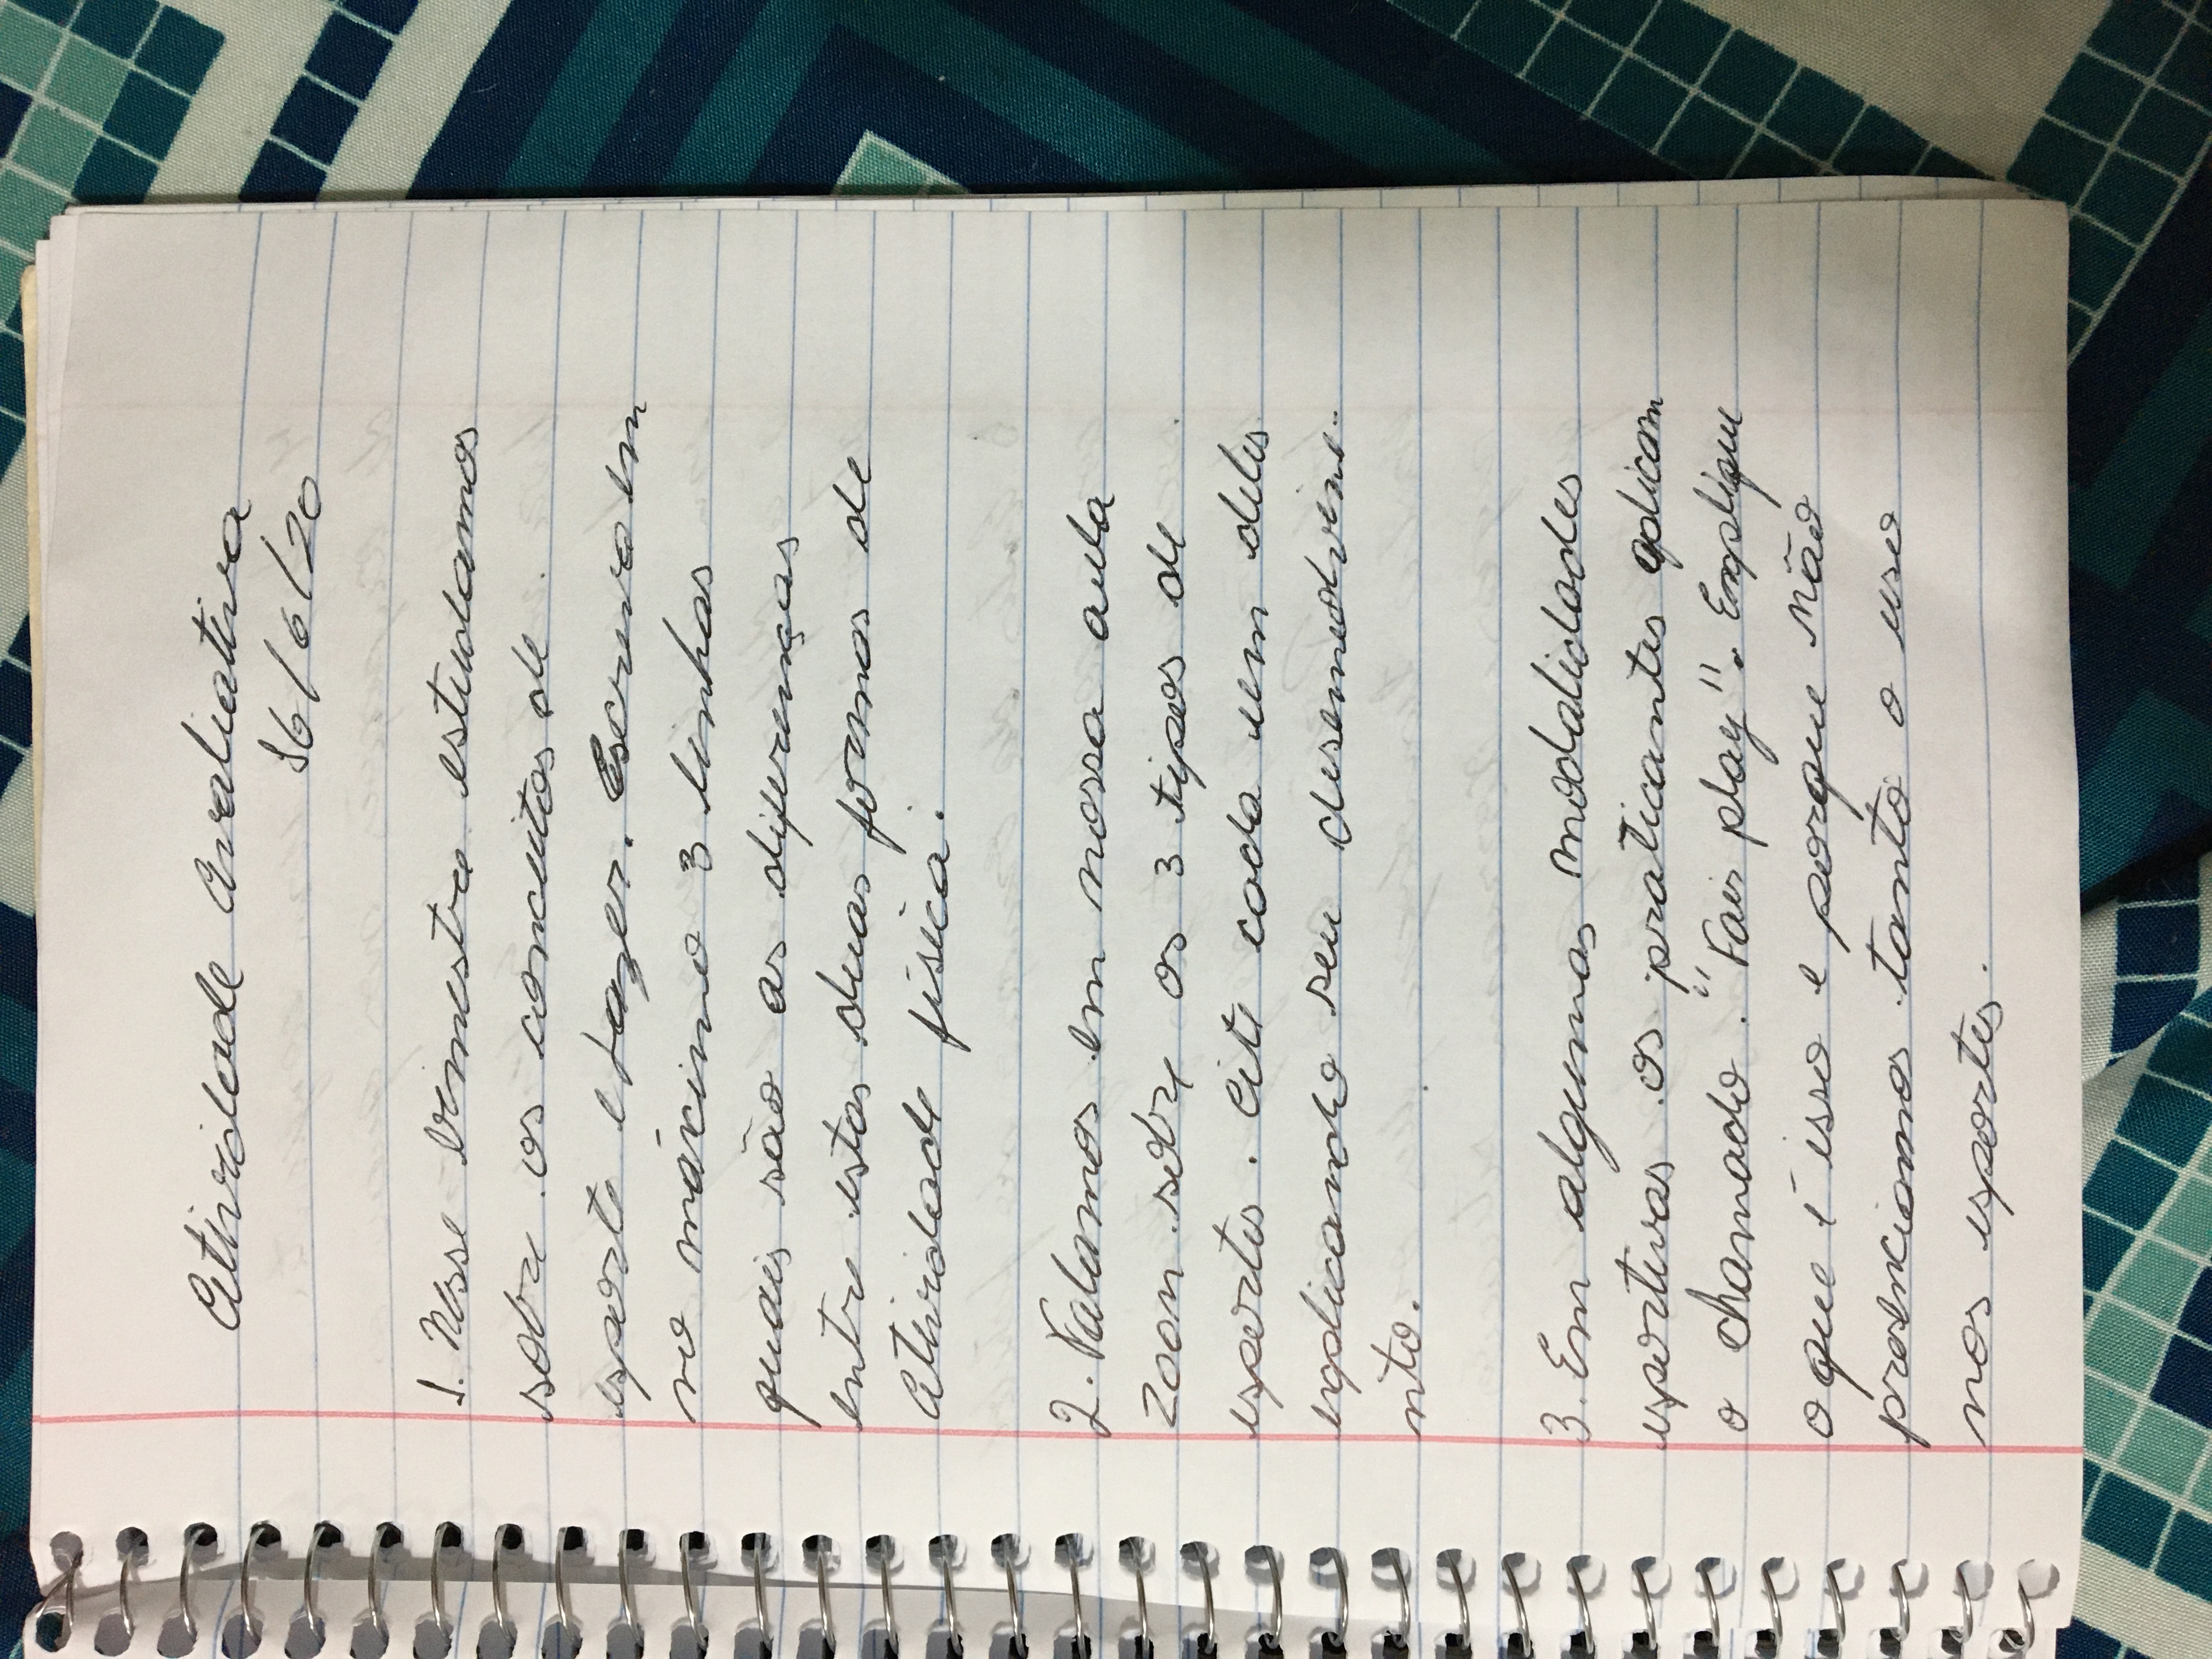 Atividade Avaliativa
16/6/20
1. Nesse bimestre estudamos
sobre os conceitos de
esporte e lazer. Escreva em
no máximo 3 linhas
quais são as diferenças
entre estas duas formas de
atividade física.
2. Falamos em nossa aula
zoom sobre os 3 tipos de
esportes. Cite cada um deles
explicando seu desenvolvime-
nto.
3. Em algumas modalidades
esportivas os praticantes aplicam
o chamado "Fair play". Explique
o que é isso e porque não
presenciamos tanto o uso
nos esportes.